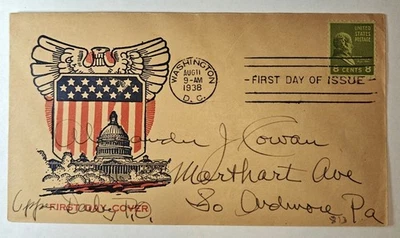 WASHINGTON
AUG 11
9-AM
1938
D. C.
FIRST DAY OF ISSUE
UNITED STATES
POSTAGE
8 CENTS 8
Alexander J. Cowan
Marthart Ave
So Ardmore, Pa
FIRST DAY COVER